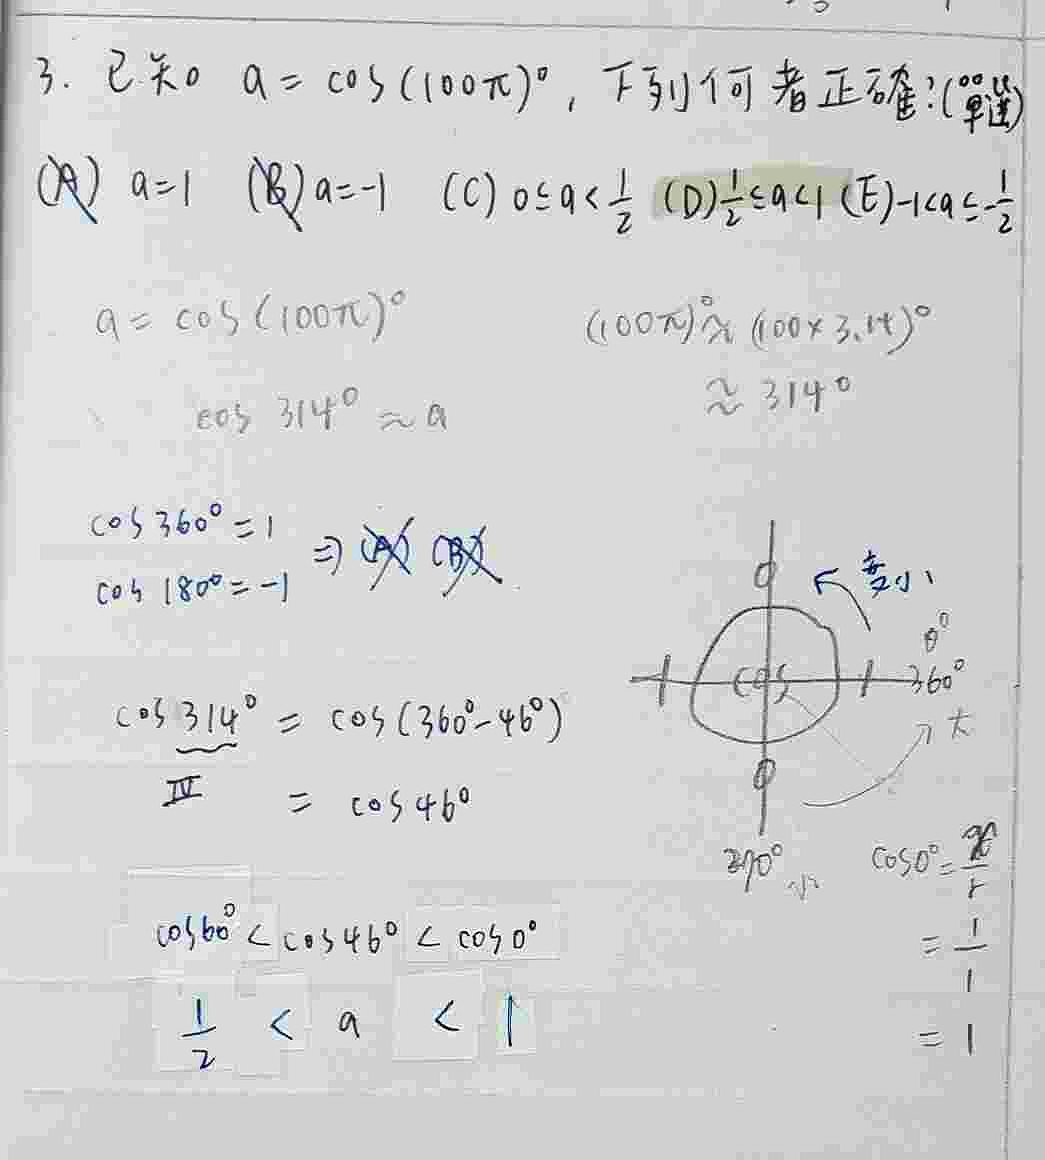 3. 已知 a = cos(100π)°, 下列何者正確?(單選)
(A) a=1 (B) a=-1 (C) 0≤a<1/2 (D) 1/2≤a<1 (E) -1<a≤-1/2
a = cos(100π)°
(100π)° ≈ (100×3.14)°
≈ 314°
cos 314° ≈ a
cos 360° = 1
cos 180° = -1
⇒ (A) (B)
變小
0°
360°
cos
大
0
1
0
270° 小
cos 314° = cos(360°-46°)
IV
= cos 46°
cos 0° = x/r
= 1/1
= 1
cos60° < cos46° < cos0°
1/2 < a < 1